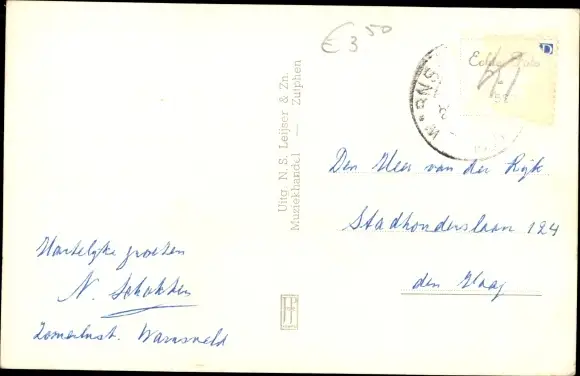 € 3 50
Echte Foto
Uitg. N. S. Leijser & Zn.
Muziekhandel — Zutphen
Den Heer van der Rijk.
Stadhouderslaan 124
den Haag
Hartelijke groeten
N. Scholten
Zomerlust. Warnsveld